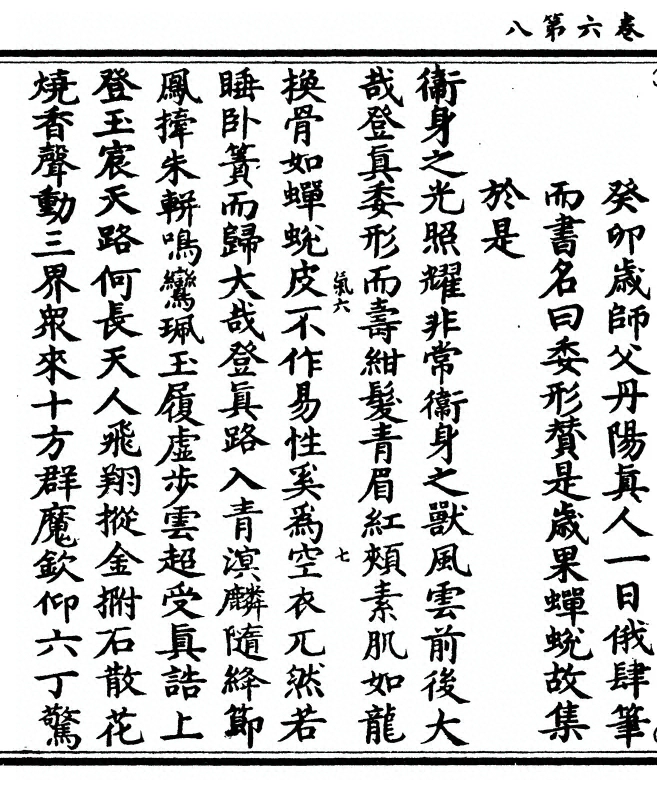 卷六第八
癸卯歲師父丹陽真人一日俄肆筆
而書名曰委形贊是歲果蟬蛻故集
於是
衞身之光照耀非常衞身之獸風雲前後大
哉登真委形而壽紺髮青眉紅頰素肌如龍
氣六
七
換骨如蟬蛻皮不作易性奚為空衣兀然若
睡卧簀而歸大哉登真路入青溟麟隨絳節
鳳擁朱軿鳴鸞珮玉履虛步雲超受真誥上
登玉宸天路何長天人飛翔摐金拊石散花
燒香聲動三界衆來十方群魔欽仰六丁驚